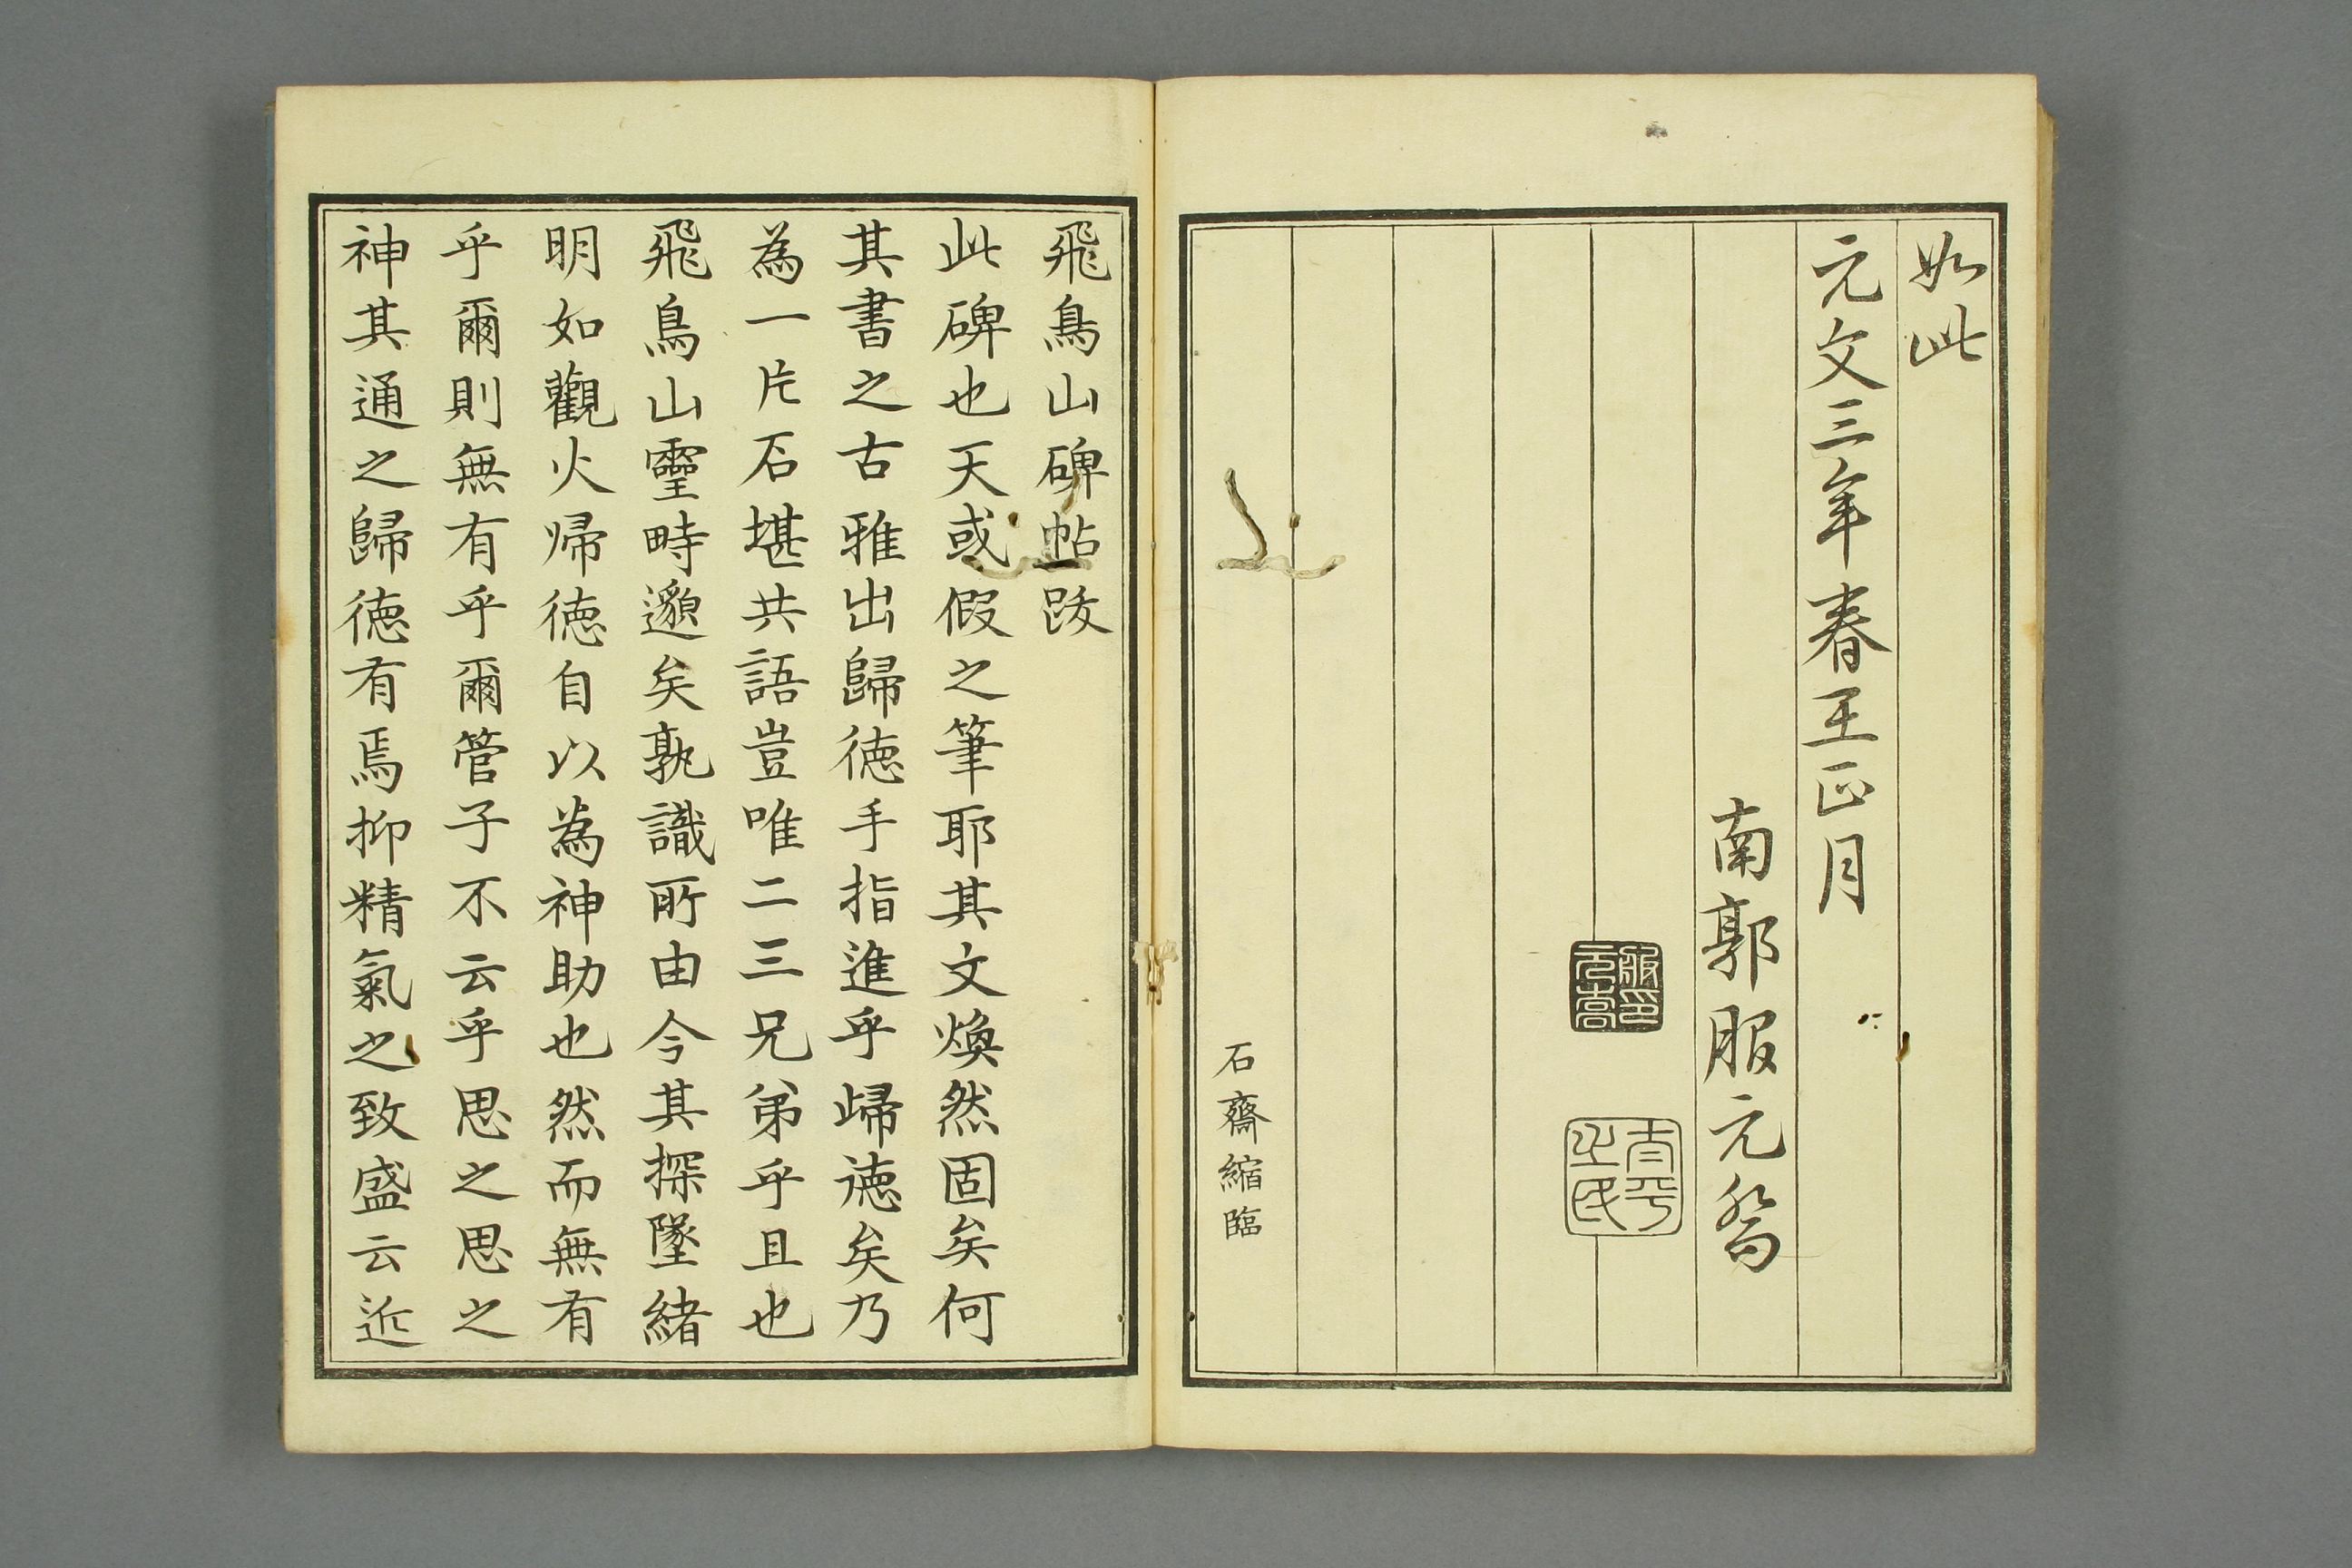 如此
元文三年春王正月
南郭服元喬
服印元喬
太平之民
石齋縮臨
飛鳥山碑帖跋
此碑也天或假之筆耶其文煥然固矣何
其書之古雅出歸徳手指進乎歸徳矣乃
為一片石堪共語豈唯二三兄弟乎且也
飛鳥山靈畤邈矣孰識所由今其探墜緒
明如觀火帰徳自以為神助也然而無有
乎爾則無有乎爾管子不云乎思之思之
神其通之歸徳有焉抑精氣之致盛云近